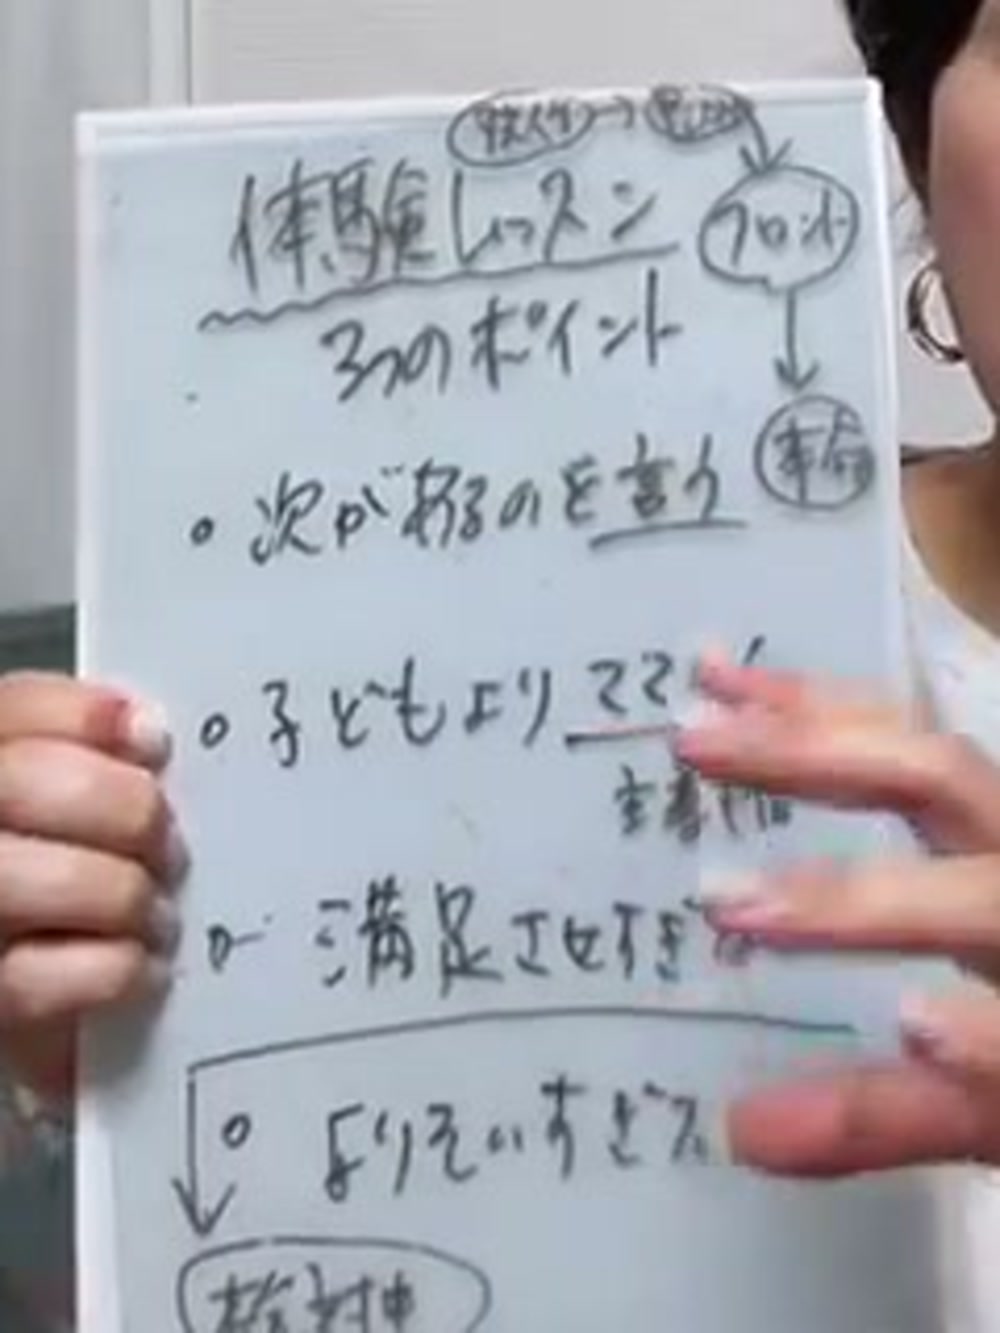 体験レッスン
フロント
3つのポイント
本命
・次があるのを言う
・子どもより ママ
・満足させすぎ
・よりそいすぎ
検討中